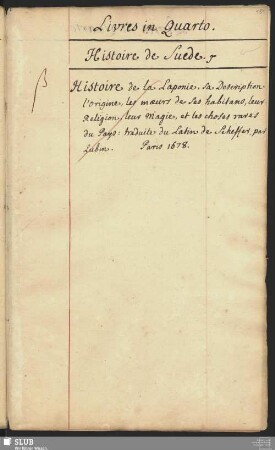 Livres in Quarto.
Histoire de Suede.
β
Histoire de la Laponie, sa Description
l'origine, les mœurs de ses habitans, leur
Religion, leur Magie, et les choses rares
du Pays: traduite du Latin de Scheffer, par
Lubin. Paris 1678.
SLUB
Wir führen Wissen.